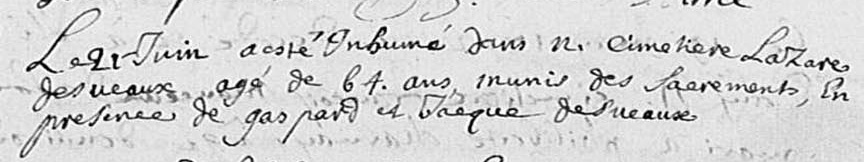 Le 21 Juin a esté Inhumé dans n. Cimetiere Lazare
desveaux agé de 64. ans, munis des sacrements, En
presence de gaspard et Jacque desveaux